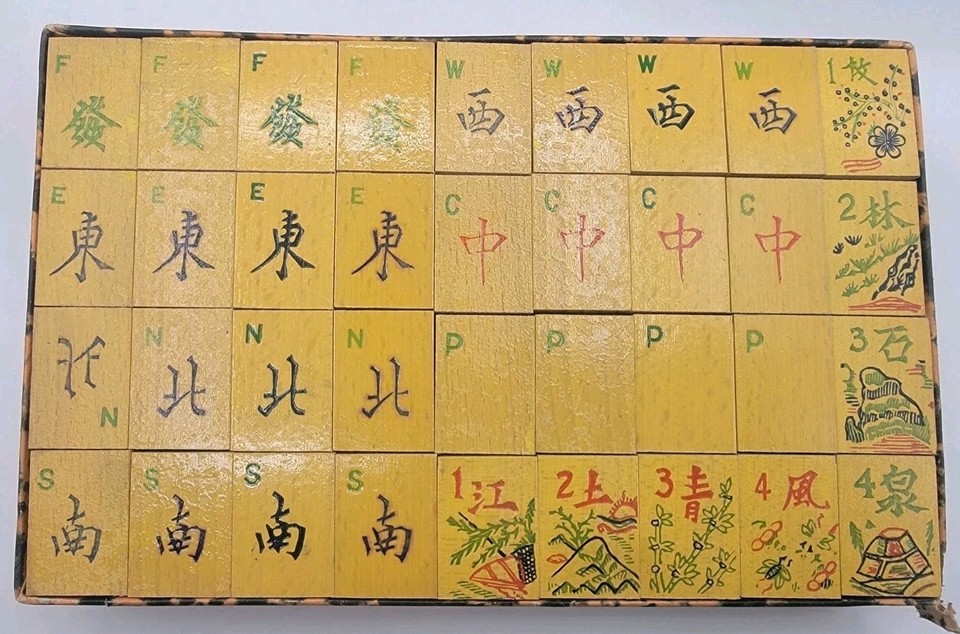 F F F F W W W W 1
發 發 發 發 西 西 西 西
E E E E C C C C 2林
東 東 東 東 中 中 中 中
N N N P P P P 3石
北 北 北 北
N
S S S S 1江 2上 3青 4風 4泉
南 南 南 南